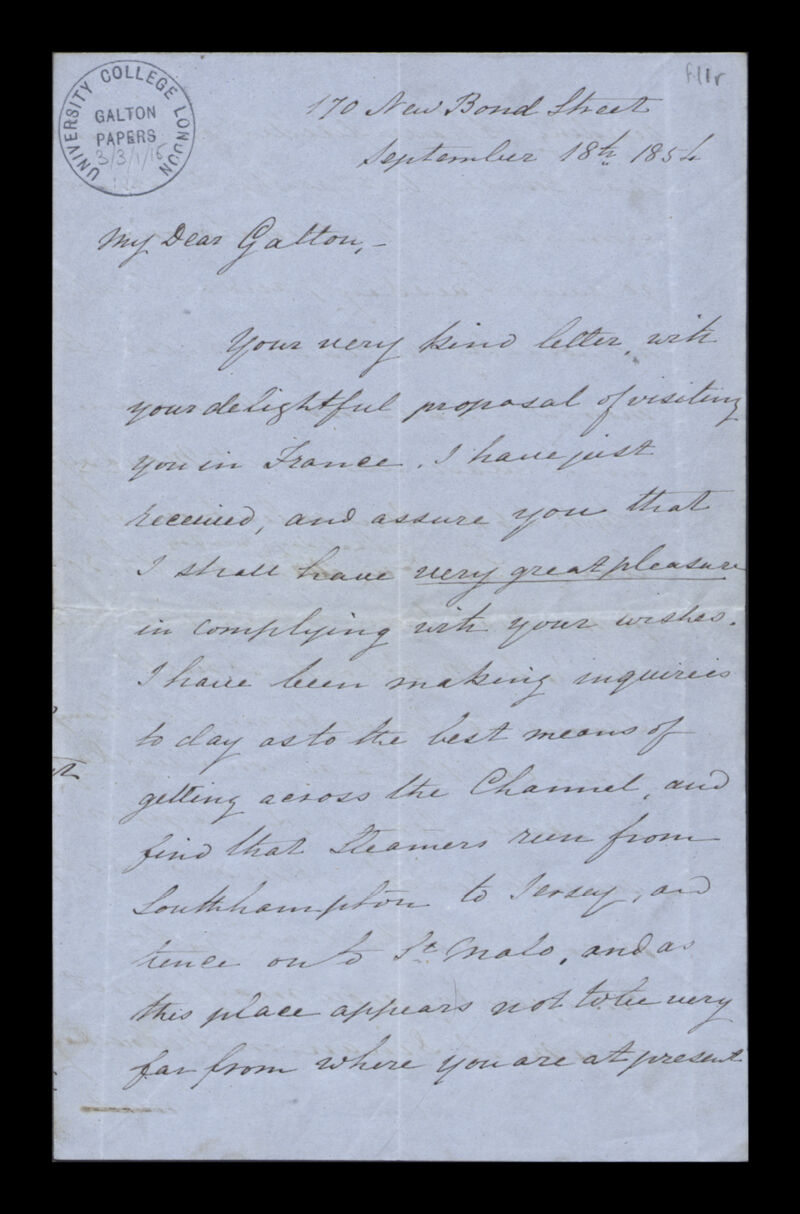 f11r
UNIVERSITY COLLEGE LONDON
GALTON
PAPERS
3/3/1/15
170 New Bond Street
September 18th 1854
My Dear Galton,-
Your very kind letter, with
your delightful proposal of visiting
you in France, I have just
received, and assure you that
I shall have very great pleasure
in complying with your wishes.
I have been making inquiries
to day as to the best means of
getting across the Channel, and
find that Steamers run from
Southhampton to Jersey, and
hence on to St Malo, and as
this place appears not to be very
far from where you are at present